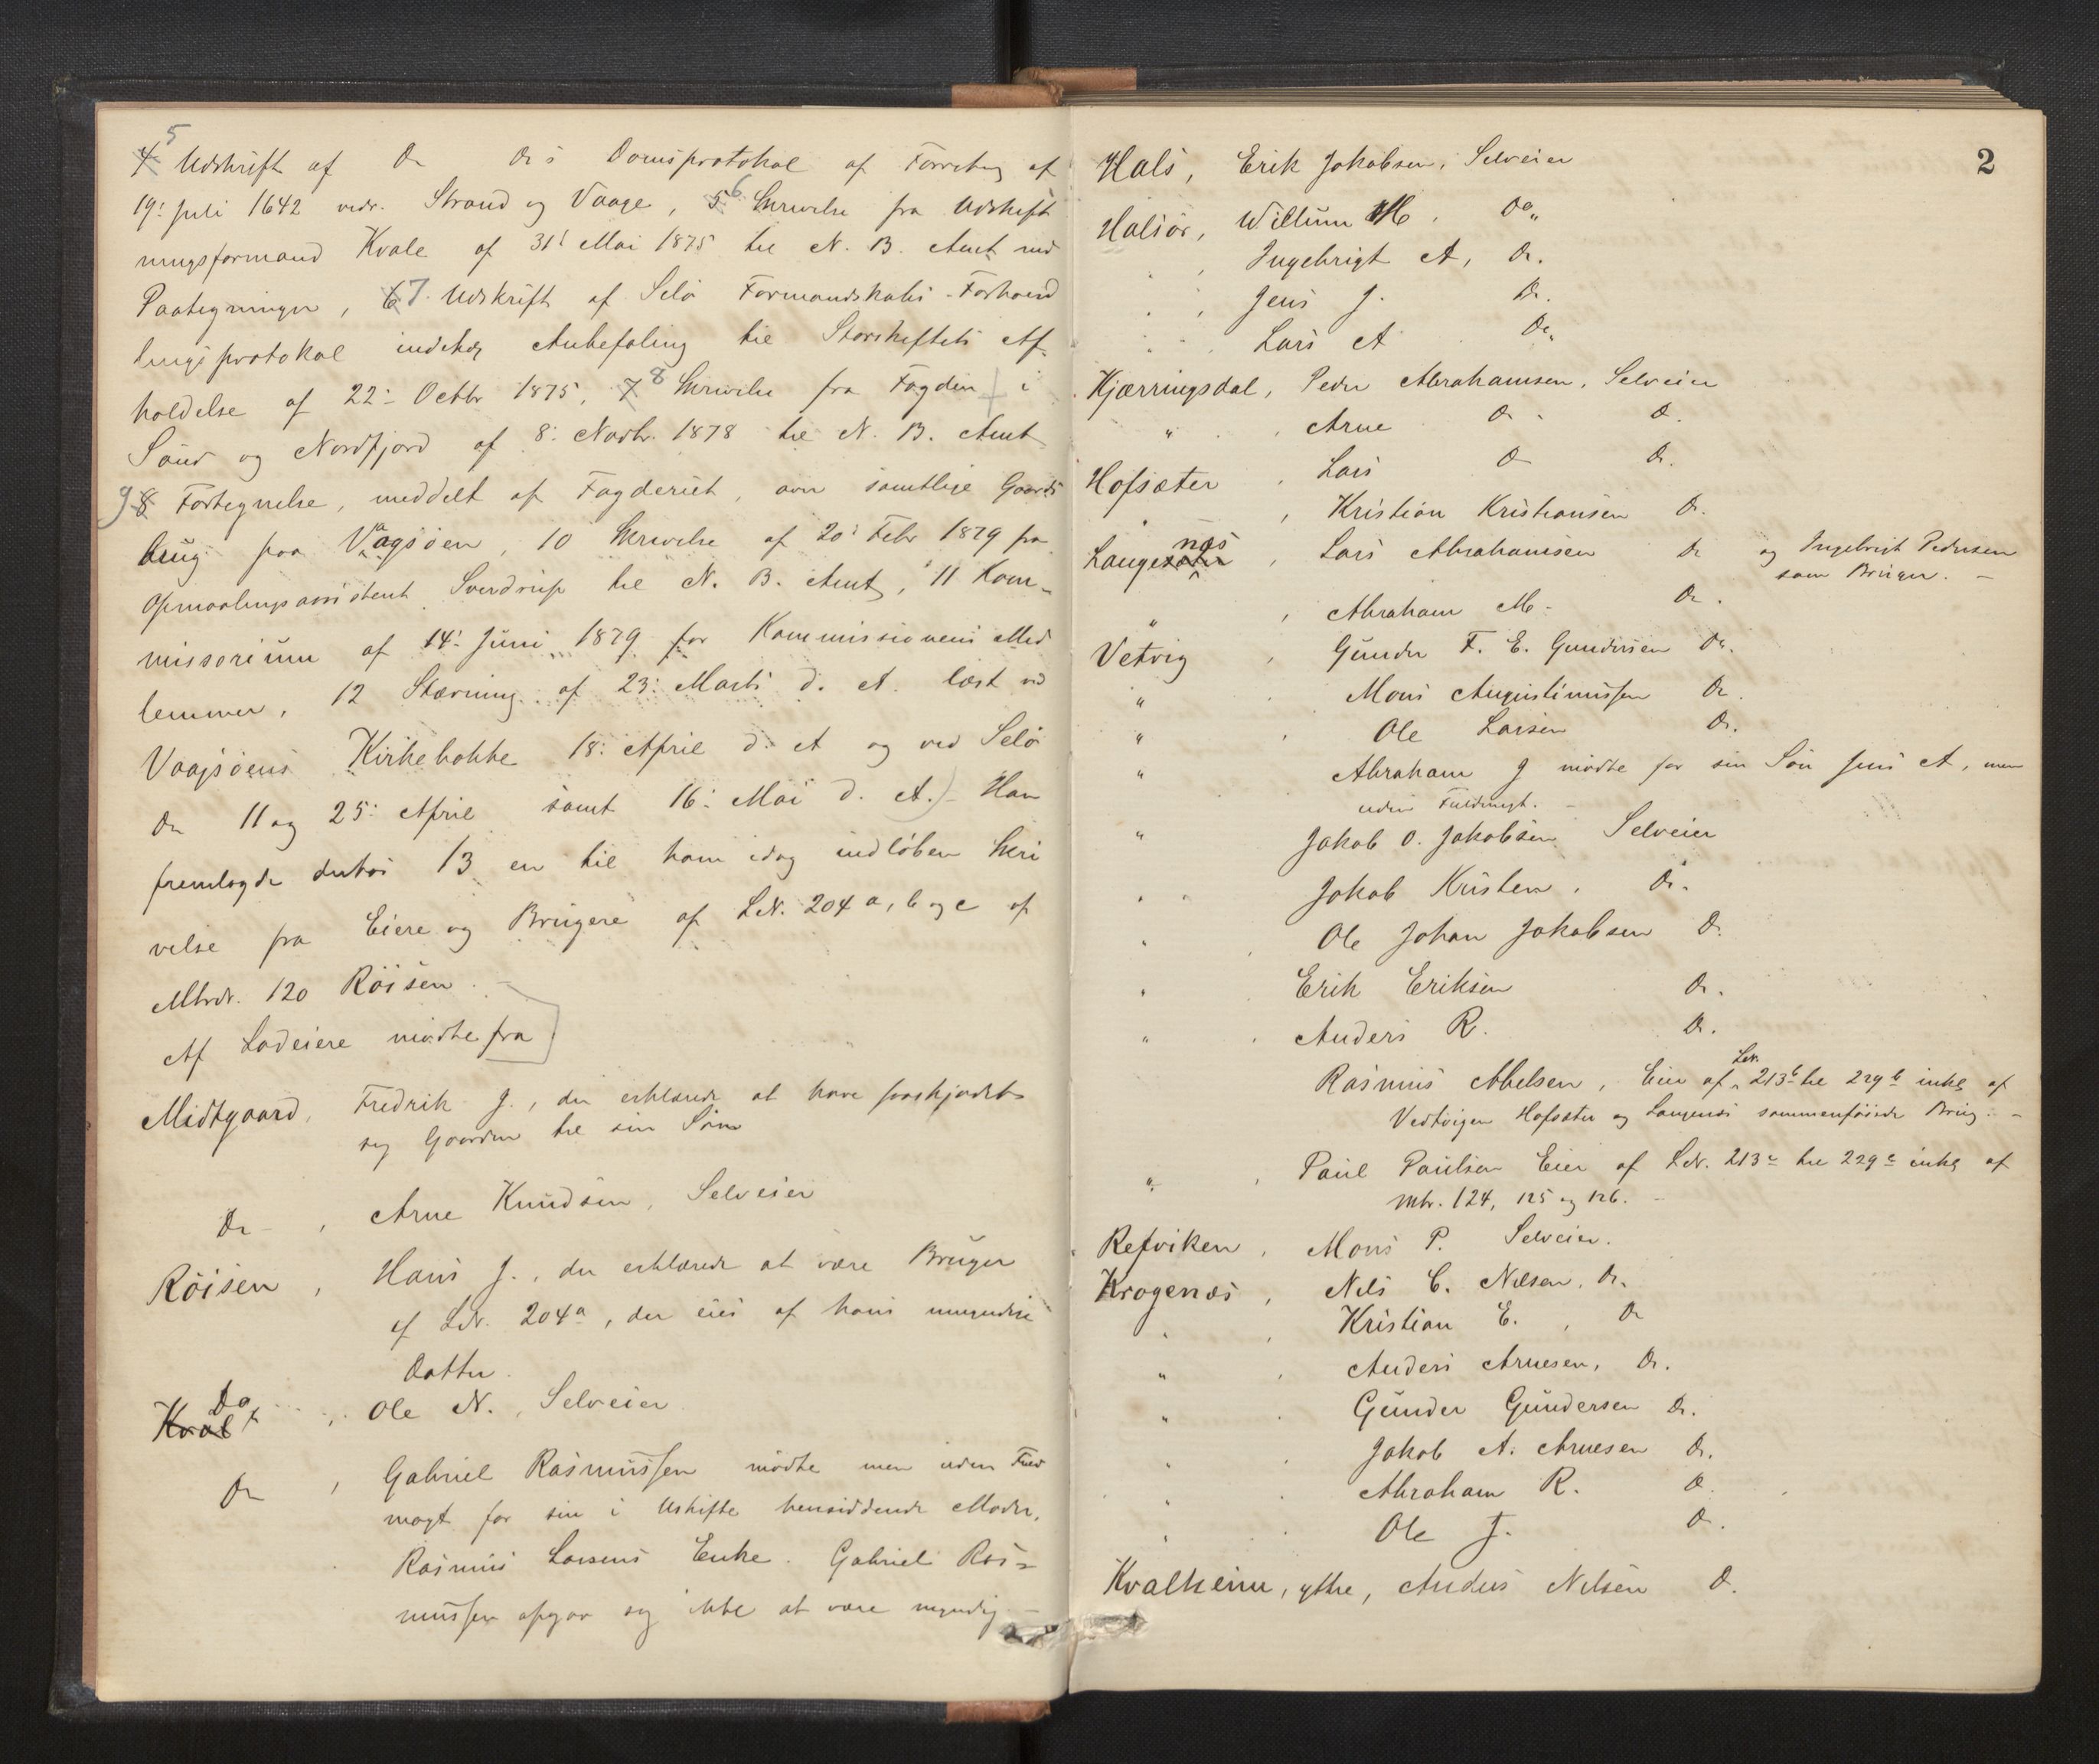 5
4 Udskrift af Do Do's Domsprotokol af Forretng af
19: Juli 1642 vedr. Strand og Vaage, 5 6 Skrivelse fra Udskift
ningsformand Kvale af 31: Mai 1875 til N. B. Amt med
Paategninger, 6 7. Udskrift af Selø Formandskabs-Forhand
lingsprotokol indehdg Anbefaling til Storskiftets Af-
holdelse af 22: Octbr 1875, 7 8 Skrivelse fra Fogden i
Sønd og Nordfjord af 8: Novbr. 1878 til N. B. Amt
9 8 Fortegnelse, meddelt af Fogderiet, over samtlige Gaards
brug paa Vaagsøen, 10 Skrivelse af 20: Febr 1879 fra
Opmaalingsassistent Sverdrup til N. B. Amt, 11 Kom-
missorium af 14: Juni 1879 for Kommissionens Med
lemmer, 12 Stævning af 23: Marts d. A. læst ved
Vaagsøens Kirkebakke 18: April d. A og ved Selø
Do 11 og 25: April samt 16: Mai d. A.) - Han
fremlagde derhos 13 en til ham idag indløben Skri
velse fra Eiere og Brugere af LN. 204 a, b og c af
Mtrdr. 120 Röisen. -
Af Lodeiere mødte fra
Midtgaard, Fredrik J., der erklærede at have fraskjødet
sig Gaarden til sin Søn
Do - , Arne Knudsen, Selveier
Röisen, Hans J., der erklærede at være Bruger
af LN. 204a, der eies af hans umyndige
Datter.
Kval Do , Ole N., Selveier
Do , Gabriel Rasmussen mødte men uden Fuld
magt for sin i Uskifte hensiddende Moder,
Rasmus Larsens Enke. Gabriel Ras-
mussen opgav sig ikke at være myndig. -
2
Hals, Erik Jakobsen, Selveier
Halsør, Willum M. Do "
" , Ingebrigt A, Do.
" , Jens J. Do.
" , Lars A Do "
Kjærringsdal, Peder Abrahamsen, Selveier
" , Arne Do - Do.
Hofsæter , Lars Do Do.
" , Kristian Kristiansen Do.
Langesæter næs , Lars Abrahamsen Do og Ingebrigt Pedersen
som Bruger. -
" , Abraham M. Do.
Vetvig , Gunder F. E. Gundersen Do.
" Mons Augustinussen Do.
" Ole Larsen Do.
" Abraham J mødte for sin Søn Jens A, men
uden Fuldmagt. -
" Jakob O. Jakobsen Selveier
" Jakob Kristen. Do.
" Ole Johan Jakobsen Do.
" Erik Eriksen Do.
" Anders R. Do.
Rasmus Abelsen, Eier af LN. 213b til 229b inkl af
Vedvigen Hofsæter og Langenæs sammenføiede Brug. -
" , Paul Paulsen Eier af LN. 213c til 229c inkl af
Mtr. 124, 125 og 126. -
Refviken , Mons P. Selveier.
Krogenæs , Nils C. Nilsen, Do.
" , Kristian E. , Do
" , Anders Arnesen, Do.
" Gunder Gundersen Do.
" Jakob A. Arnesen Do.
" Abraham R. Do.
" Ole J. Do.
Kvalheim, ytre, Anders Nilsen Do.